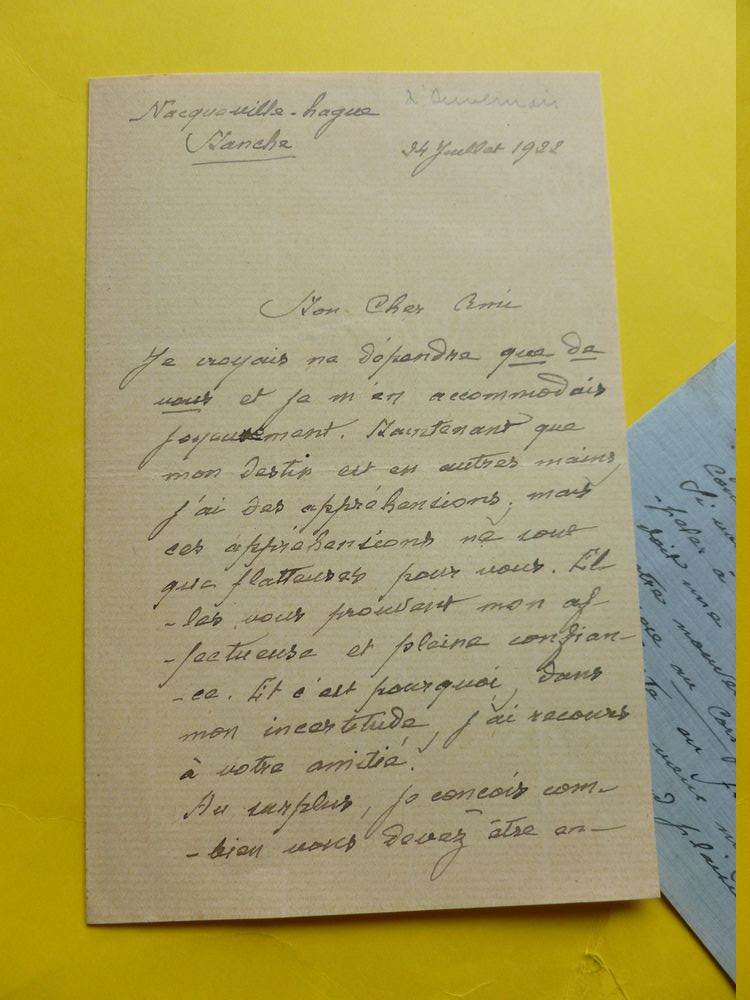 Nacqueville-hague
Manche
24 Juillet 1922
Mon Cher Ami
Je croyais ne dépendre que de
vous et je m'en accommodais
joyeusement. Maintenant que
mon destin est en autres mains,
j'ai des appréhensions, mais
ces appréhensions ne sont
que flatteuses pour vous. El-
-les vous prouvent mon af
-fectueuse et pleine confian-
-ce. Et c'est pourquoi, dans
mon incertitude, j'ai recours
à votre amitié.
Au surplus, je conçois com-
-bien vous devez être en-
Si un
-poler à
doit une
mouve
au
ou
mens
plais